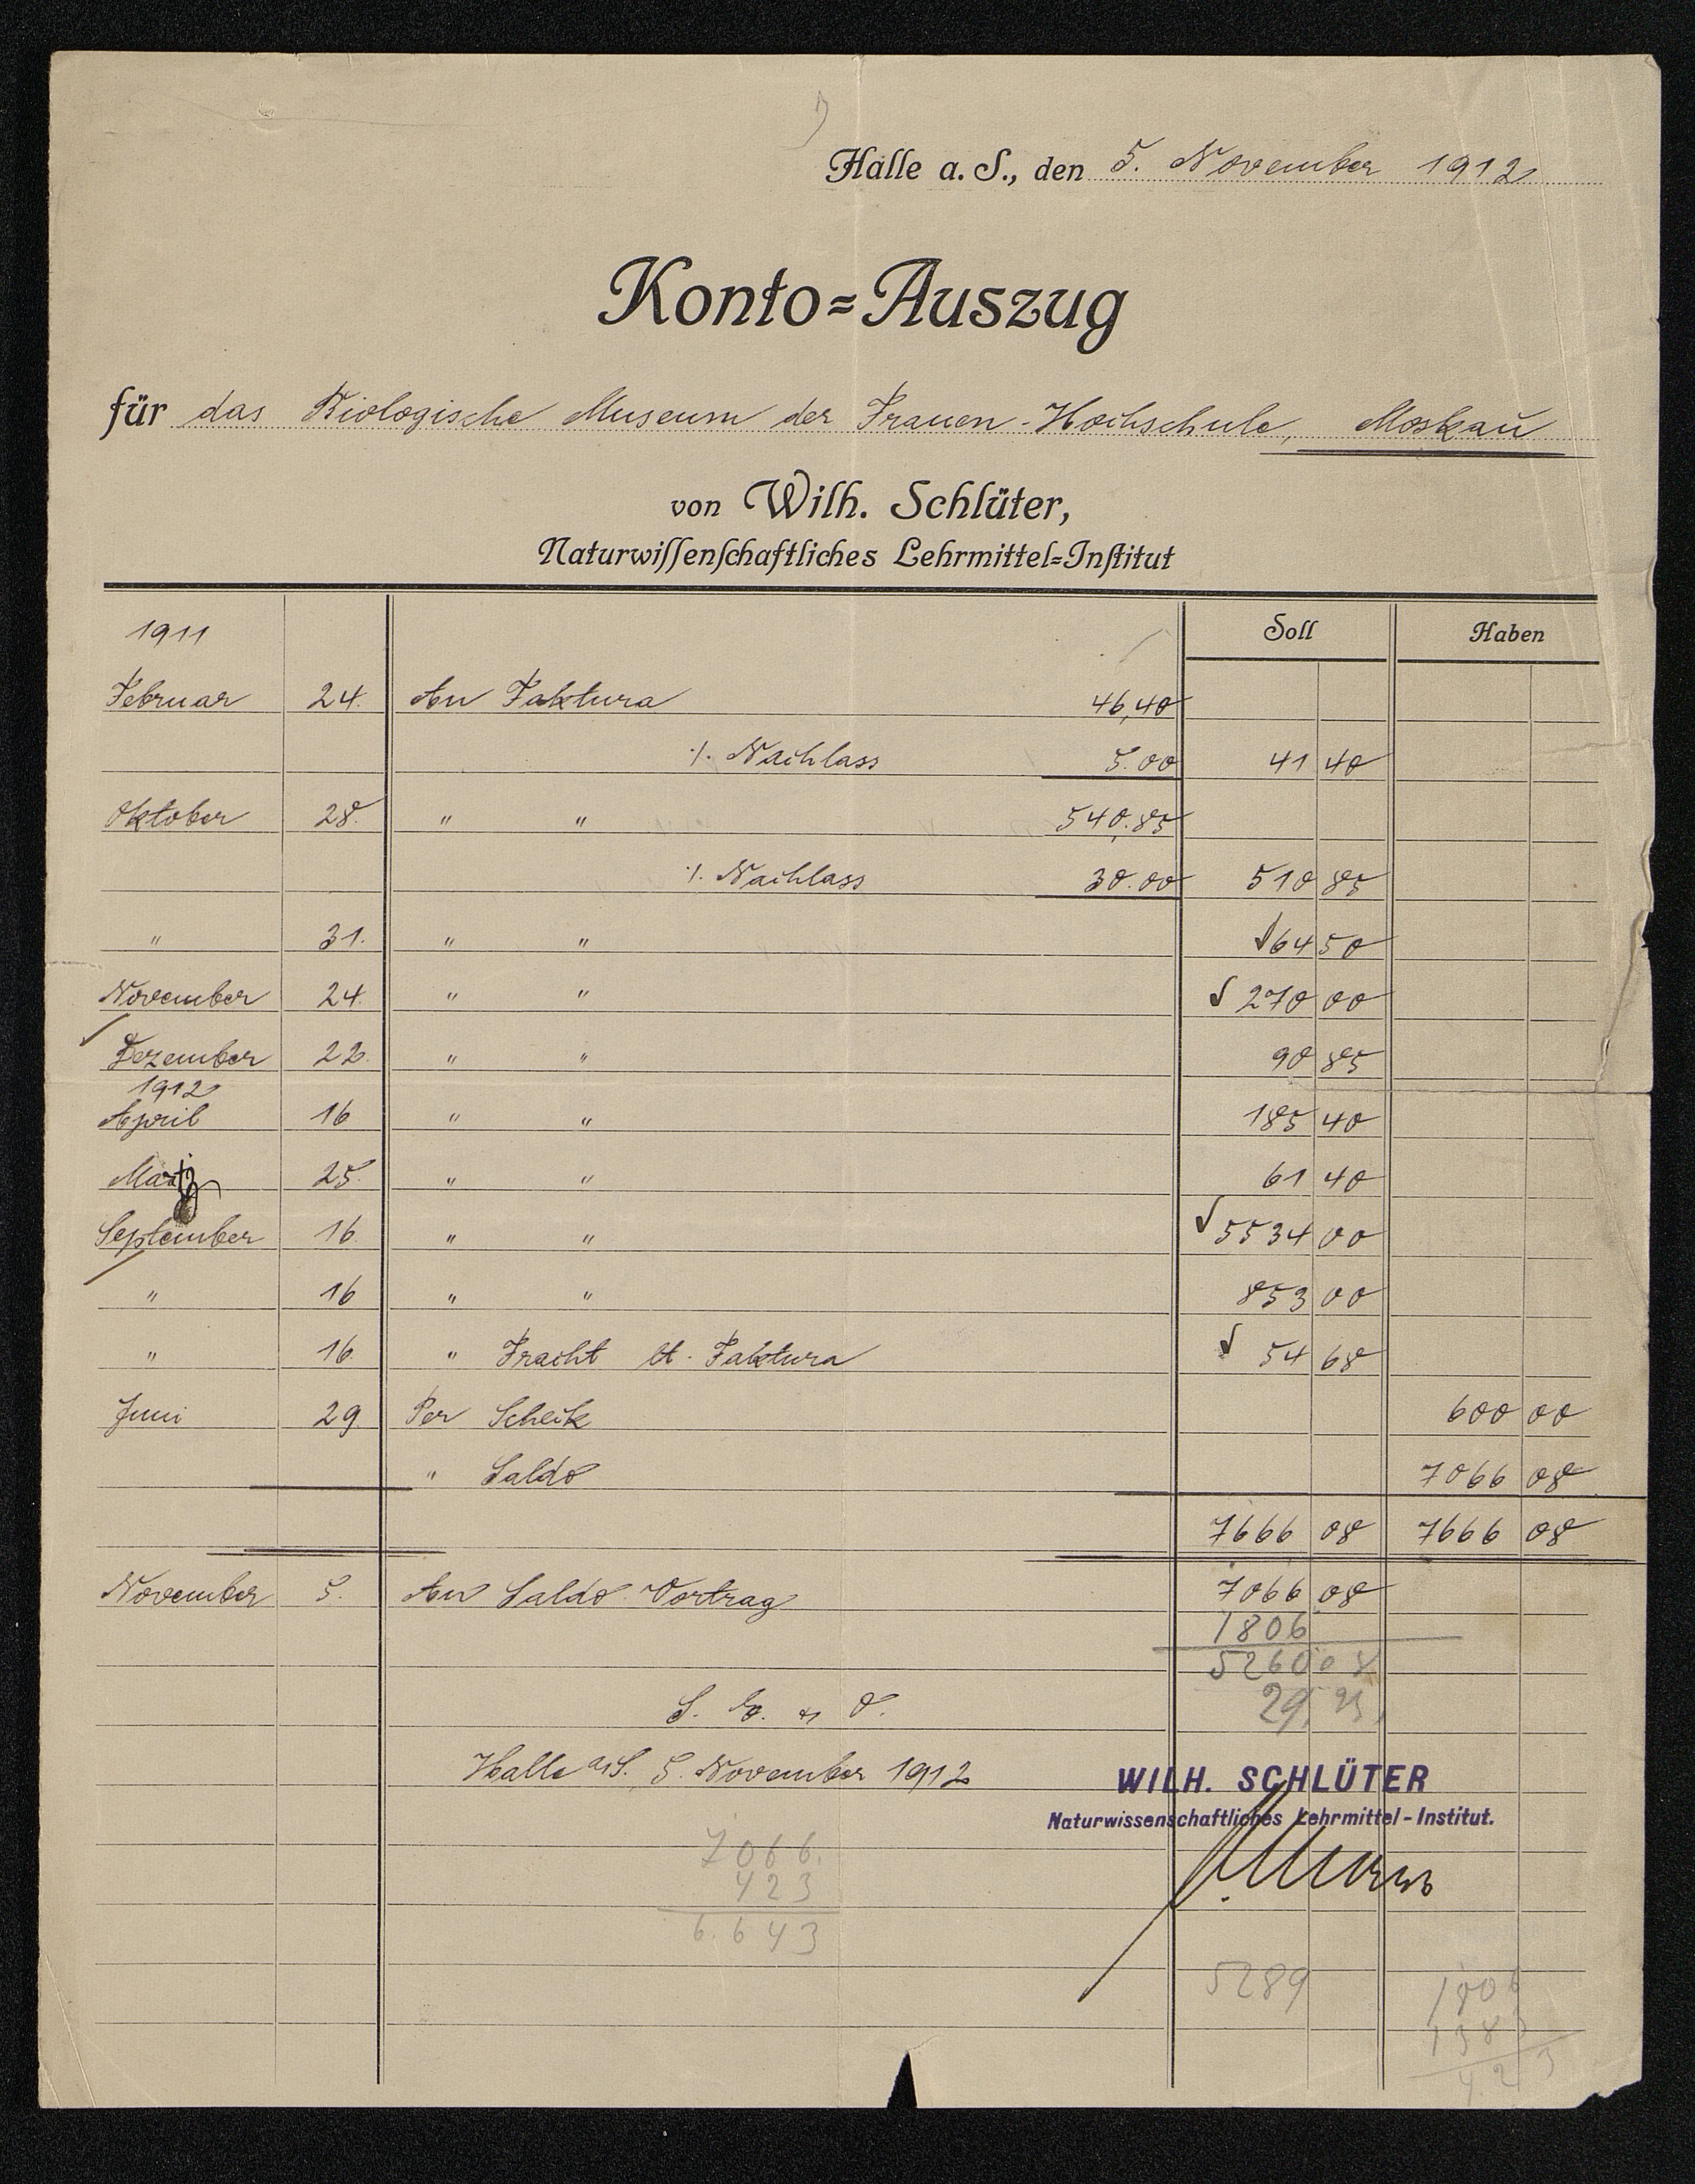 Halle a. S., den 5. November 1912
Konto=Auszug
für das Biologische Museum der Frauen-Hochschule, Moskau
von Wilh. Schlüter,
Naturwissenschaftliches Lehrmittel=Institut
1911 Soll Haben
Februar 24. An Faktura 46,40
./. Nachlass 5.00 41 40
Oktober 28. " " 540.85
./. Nachlass 30.00 510 85
" 31. " " 64 50
November 24. " " 270 00
Dezember 22. " " 90 85
1912
April 16 " " 185 40
März 25. " " 61 40
September 16. " " 5534 00
" 16 " " 853 00
" 16. " Fracht lt. Faktura 54 68
Juni 29. Per Scheck 600 00
" Saldo 7066 08
7666 08 7666 08
November 5. An Saldo-Vortrag 7066 08
1806
5260 08
29,
S. E. & O.
Halle a/S. 5. November 1912
WILH. SCHLÜTER
Naturwissenschaftliches Lehrmittel-Institut.
7066.
423
6.643
5289
1806
1383
423